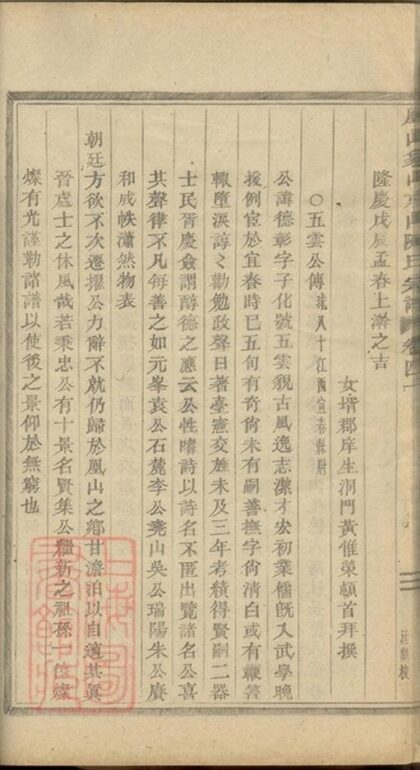 隆慶戊辰孟春上澣之吉
女壻郡庠生洞門黃惟榮頓首拜撰
○五雲公傳 球八十江西宜春縣尉
公諱德彰字子化號五雲貌古風逸志潔才宏初業儒旣入武學晚
援例宦於宜春時已五旬有奇尙未有嗣善撫字尙淸白或有鞭箠
輒墮淚諄々勸勉政聲日著臺憲交旌未及三年考績得賢嗣二器
士民胥慶僉謂醇德之應云公性嗜詩以詩名不匿出覽諸名公喜
其聲律不凡每善之如元峯袁公石麓李公堯山吳公瑞陽朱公賡
和成帙瀟然物表
朝廷方欲不次遷擢公力辭不就仍歸於鳳山之鄕甘澹泊以自適其眞
晉處士之休風哉若秉忠公有十景名賢集公繼新之祖孫一
燦有光謹勒諸譜以使後之景仰於無窮也